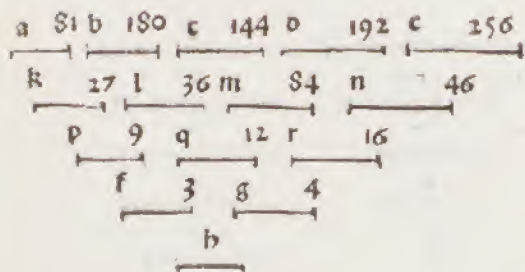 a 81 b 180 c 144 d 192 e 256
k 27 l 36 m 84 n 46
p 9 q 12 r 16
f 3 g 4
h